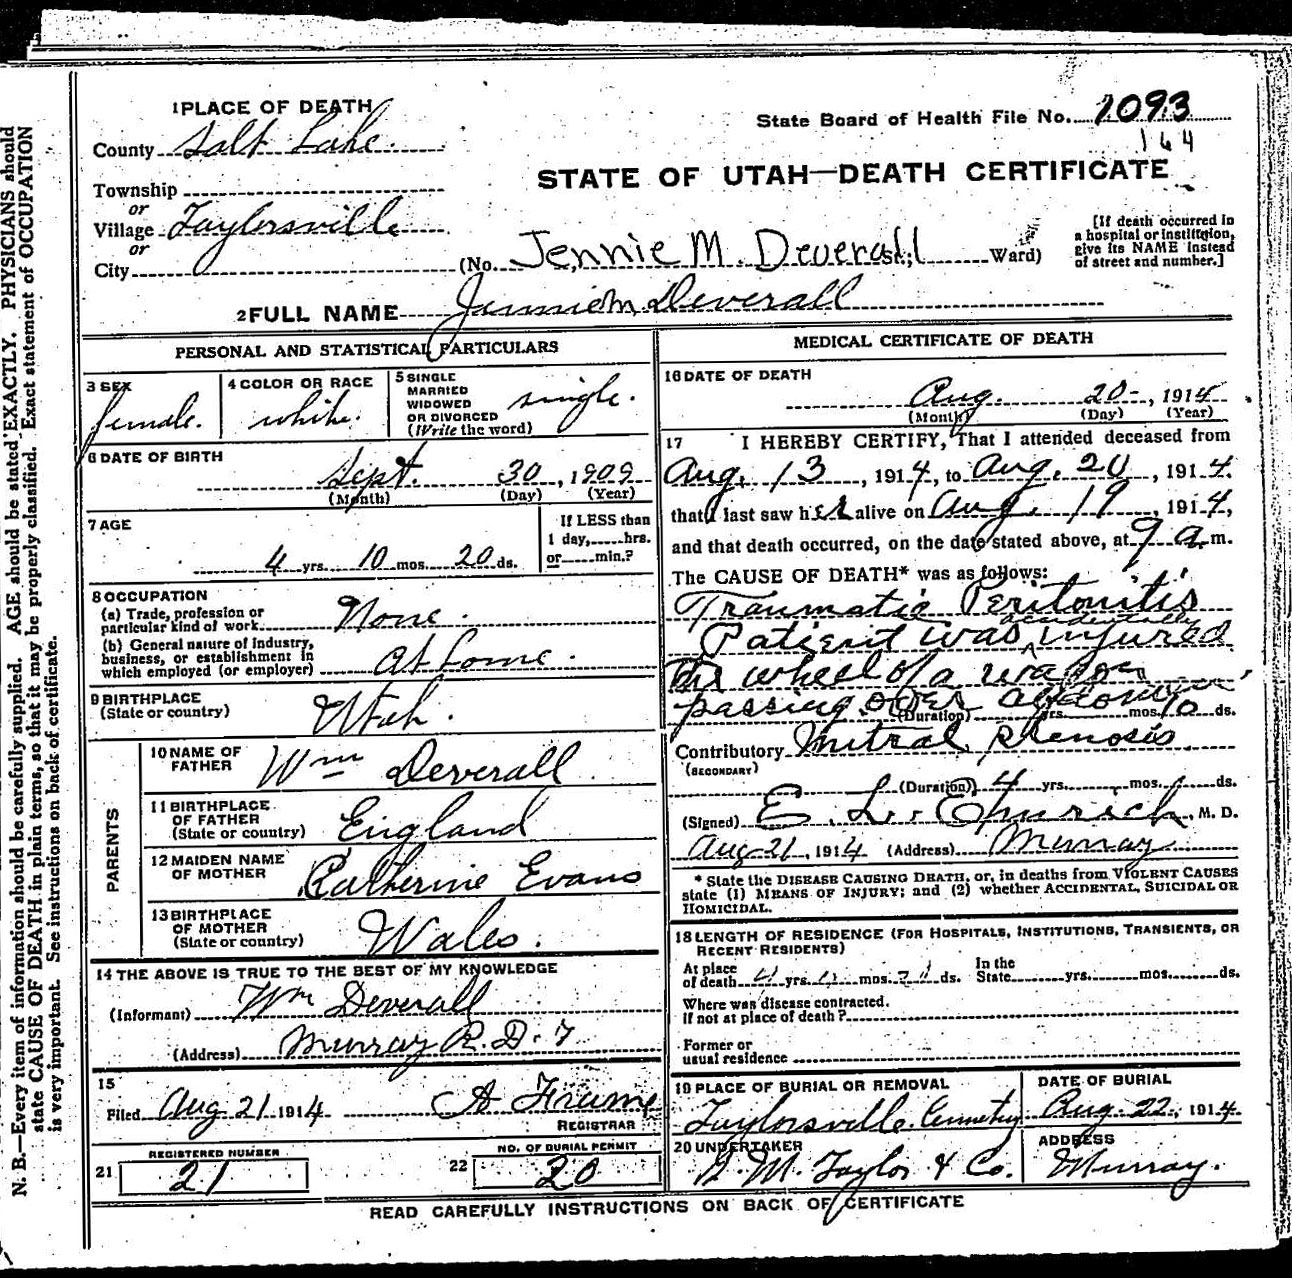 N. B.—Every item of information should be carefully supplied. AGE should be stated EXACTLY. PHYSICIANS should
state CAUSE OF DEATH in plain terms, so that it may be properly classified. Exact statement of OCCUPATION
is very important. See instructions on back of certificate.
1 PLACE OF DEATH
County Salt Lake.
Township
or
Village Taylorsville
or
City
State Board of Health File No. 1093
164
STATE OF UTAH—DEATH CERTIFICATE
(No. Jennie M. Deverall St.; Ward)
[If death occurred in
a hospital or institution,
give its NAME instead
of street and number.]
2 FULL NAME Jennie M. Deverall
PERSONAL AND STATISTICAL PARTICULARS
3 SEX
female.
4 COLOR OR RACE
white.
5 SINGLE
MARRIED
WIDOWED
OR DIVORCED
(Write the word)
single.
6 DATE OF BIRTH
Sept. 30, 1909
(Month) (Day) (Year)
7 AGE
4 yrs. 10 mos. 20 ds.
If LESS than
1 day, hrs.
or min.?
8 OCCUPATION
(a) Trade, profession or
particular kind of work None.
(b) General nature of industry,
business, or establishment in
which employed (or employer) at home.
9 BIRTHPLACE
(State or country) Utah.
PARENTS
10 NAME OF
FATHER Wm Deverall
11 BIRTHPLACE
OF FATHER
(State or country) England
12 MAIDEN NAME
OF MOTHER Katherine Evans
13 BIRTHPLACE
OF MOTHER
(State or country) Wales.
14 THE ABOVE IS TRUE TO THE BEST OF MY KNOWLEDGE
(Informant) Wm Deverall
(Address) Murray R. D. 7
15
Filed Aug 21 1914 A Frame
REGISTRAR
21 REGISTERED NUMBER
21
22 NO. OF BURIAL PERMIT
20
MEDICAL CERTIFICATE OF DEATH
16 DATE OF DEATH
Aug. 20-, 1914
(Month) (Day) (Year)
17 I HEREBY CERTIFY, That I attended deceased from
Aug. 13, 1914, to Aug. 20, 1914.
that I last saw her alive on Aug. 19, 1914,
and that death occurred, on the date stated above, at 9 a.m.
The CAUSE OF DEATH* was as follows:
Traumatic Peritonitis
accidentally
Patient was injured
wheel of a wagon
passing over abdomen,
(Duration) yrs. mos. 10 ds.
Contributory Mitral Stenosis
(SECONDARY)
(Duration) 4 yrs. mos. ds.
(Signed) E. L. , M. D.
Aug 21, 1914 (Address) Murray
* State the DISEASE CAUSING DEATH, or, in deaths from VIOLENT CAUSES
state (1) MEANS OF INJURY; and (2) whether ACCIDENTAL, SUICIDAL OR
HOMICIDAL.
18 LENGTH OF RESIDENCE (FOR HOSPITALS, INSTITUTIONS, TRANSIENTS, OR
RECENT RESIDENTS)
At place
of death yrs. mos. ds. In the
State yrs. mos. ds.
Where was disease contracted.
if not at place of death?
Former or
usual residence
19 PLACE OF BURIAL OR REMOVAL
Taylorsville Cemetery
DATE OF BURIAL
Aug. 22, 1914.
20 UNDERTAKER
M. Taylor & Co.
ADDRESS
Murray.
READ CAREFULLY INSTRUCTIONS ON BACK OF CERTIFICATE